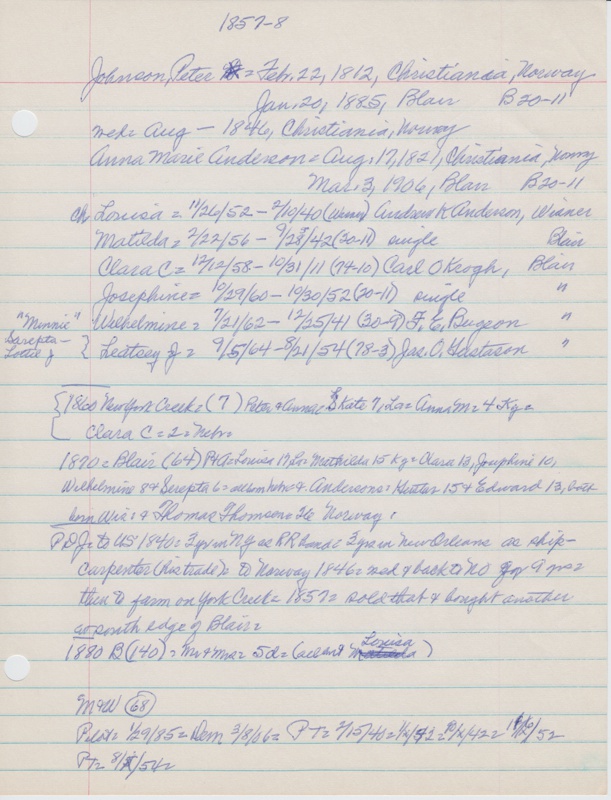 1857-8
Johnson, Peter = Feb. 22, 1812, Christiania, Norway
Jan. 20, 1885, Blair B20-11
md = Aug - 1846, Christiania, Norway
Anna Marie Anderson = Aug. 17, 1821, Christiania, Norway
Mar. 3, 1906, Blair B20-11
ch Louisa = 11/26/52 - 2/10/40 (Winner) Andrew K Anderson, Winner
Matilda = 2/22/56 - 9/28/42 (20-11) single Blair
Clara C = 12/12/58 - 10/31/11 (74-10) Carl O Krogh, Blair
Josephine = 10/29/60 - 10/30/52 (20-11) single "
"Minnie" Wilhelmine = 7/21/62 - 12/25/41 (30-9) F. E. Bugeon "
Sarepta - Lottie J { Leatsey J = 9/5/64 - 8/21/54 (78-3) Jas. O. Gustason "
{ 1860 New York Creek = (7) Peter & Anna = Skate 7, La = Anna M = 4 Ky =
Clara C = 2 = Nebr =
1870 = Blair (64) P & A = Louisa 17 La = Mathilda 15 Ky = Clara 13, Josephine 10,
Wilhelmine 8 & Serepta 6 = all born Nebr = & Andersons = Hester 15 & Edward 13, both
born Wis = & Thomas Thomson = 26 Norway =
P D J = to US 1840 = 3 yrs in NY as RR hand = 3 yrs in New Orleans as ship-
carpenter (his trade) = to Norway 1846 = md & back to NO for 9 yrs
then to farm on York Creek = 1857 = sold that & bought another
so south edge of Blair =
1880 B (140) = Mr & Mrs = 5 d = (all but Louisa)
M & W (68)
P Lot = 1/29/85 = Dem 3/8/06 = PT = 2/15/40 = /42 = /42 = /52
PT = 8/ /54 =